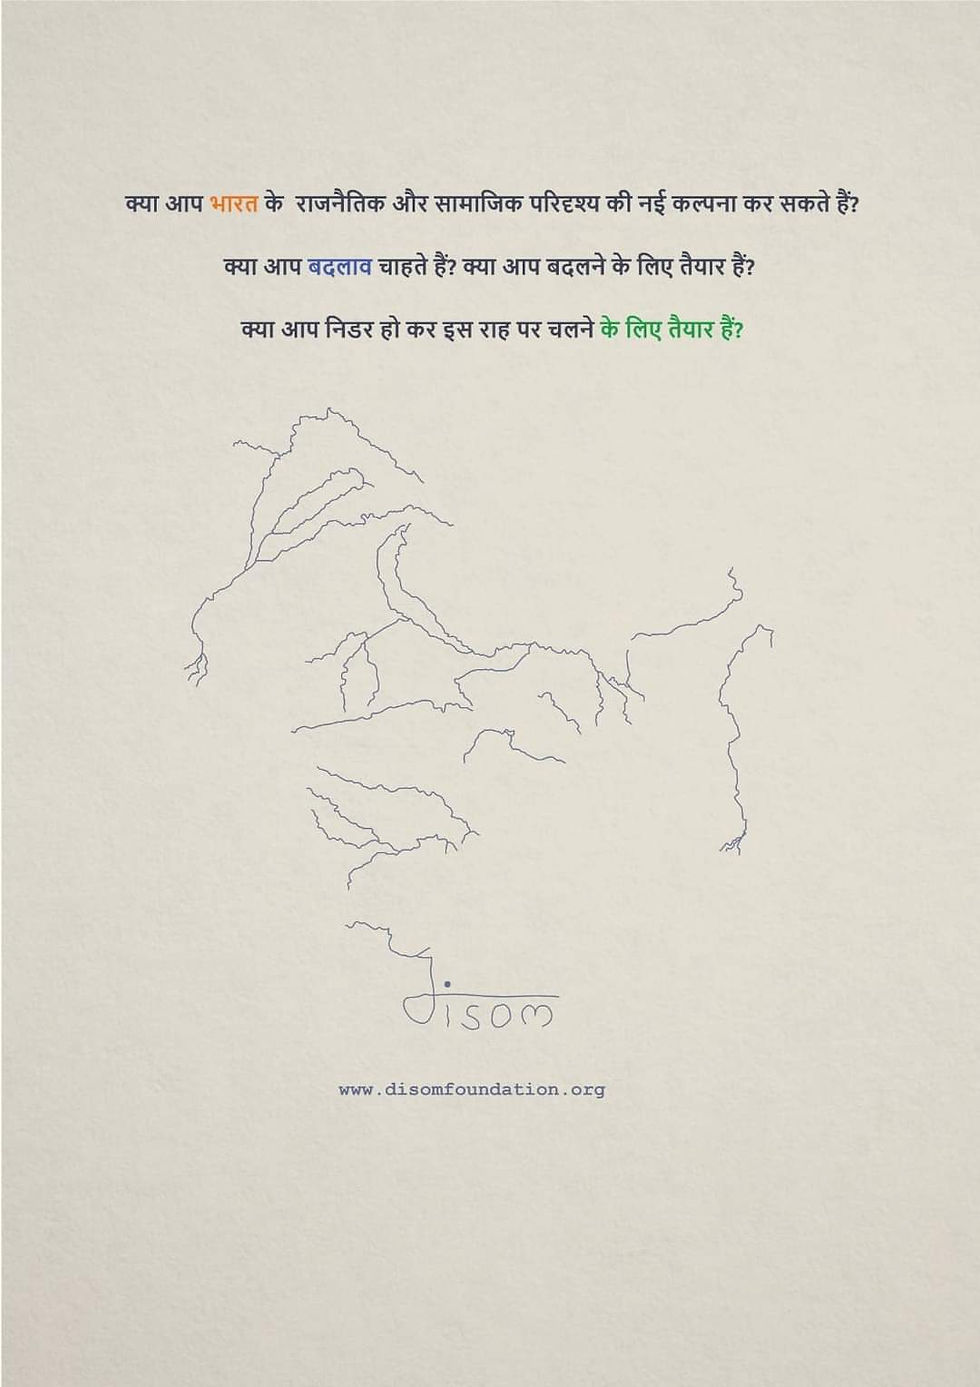 क्या आप भारत के राजनैतिक और सामाजिक परिदृश्य की नई कल्पना कर सकते हैं?
क्या आप बदलाव चाहते हैं? क्या आप बदलने के लिए तैयार हैं?
क्या आप निडर हो कर इस राह पर चलने के लिए तैयार हैं?
disom
www.disomfoundation.org